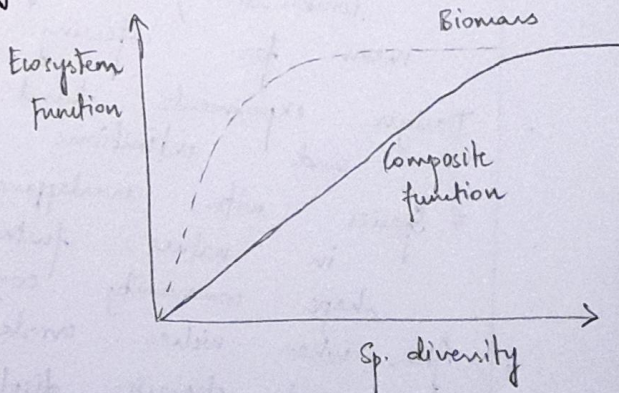 Biomass
Ecosystem
Function
Composite
function
Sp. diversity